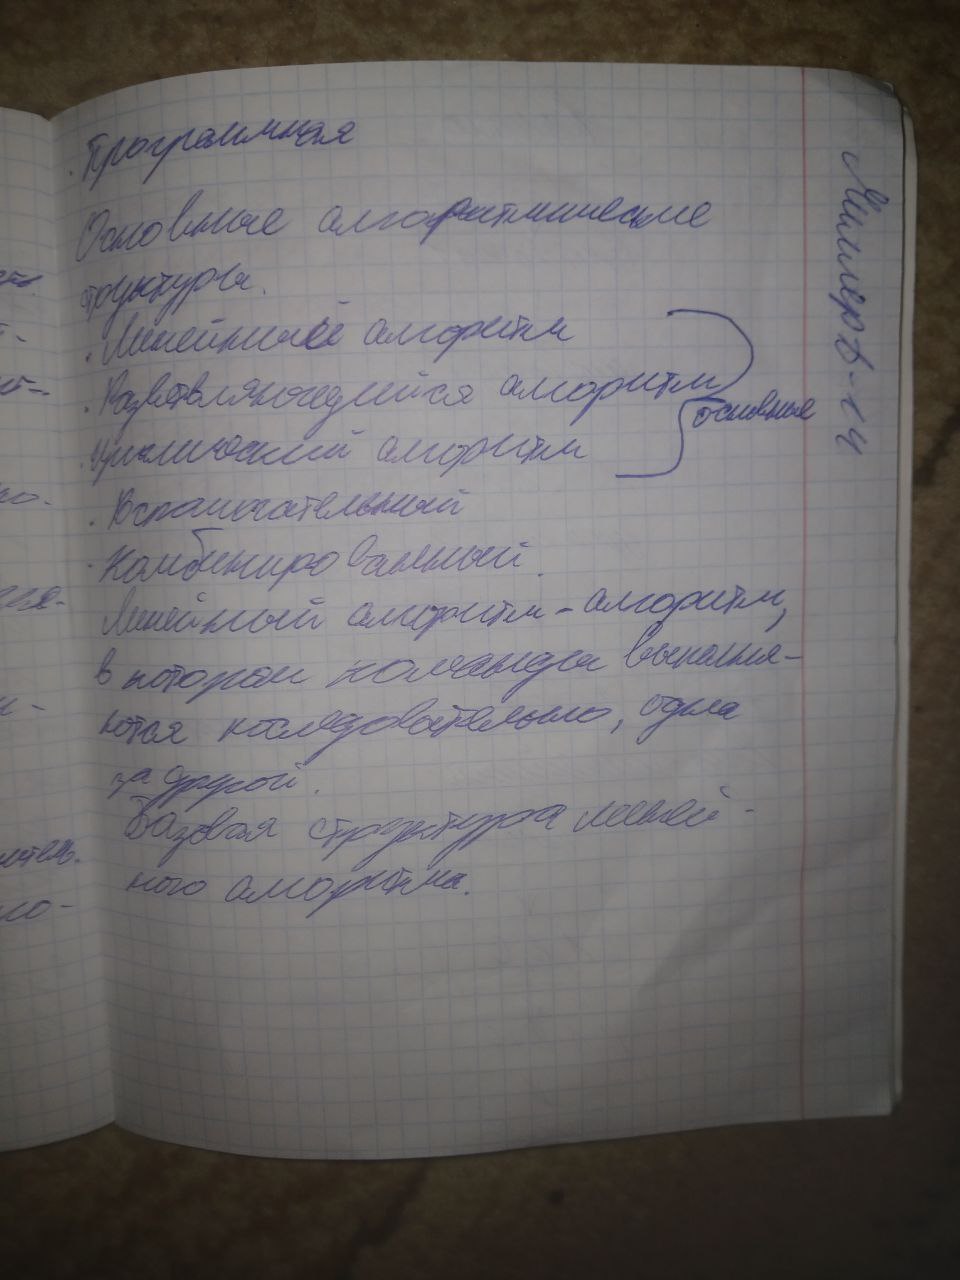 · Программная
Основные алгоритмические
структуры.
· Линейный алгоритм
· Разветвляющейися алгоритм
· Циклический алгоритм
основные
· Вспомогательный
· Комбинированный.
Линейный алгоритм - алгоритм,
в котором команды выполня-
ются последовательно, одна
за другой.
Базовая структура линей-
ного алгоритма.